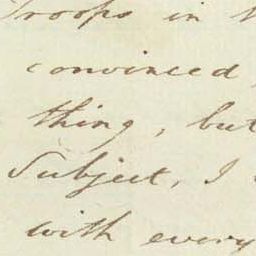 Troops in
convinced
thing, but
Subject, I
with every